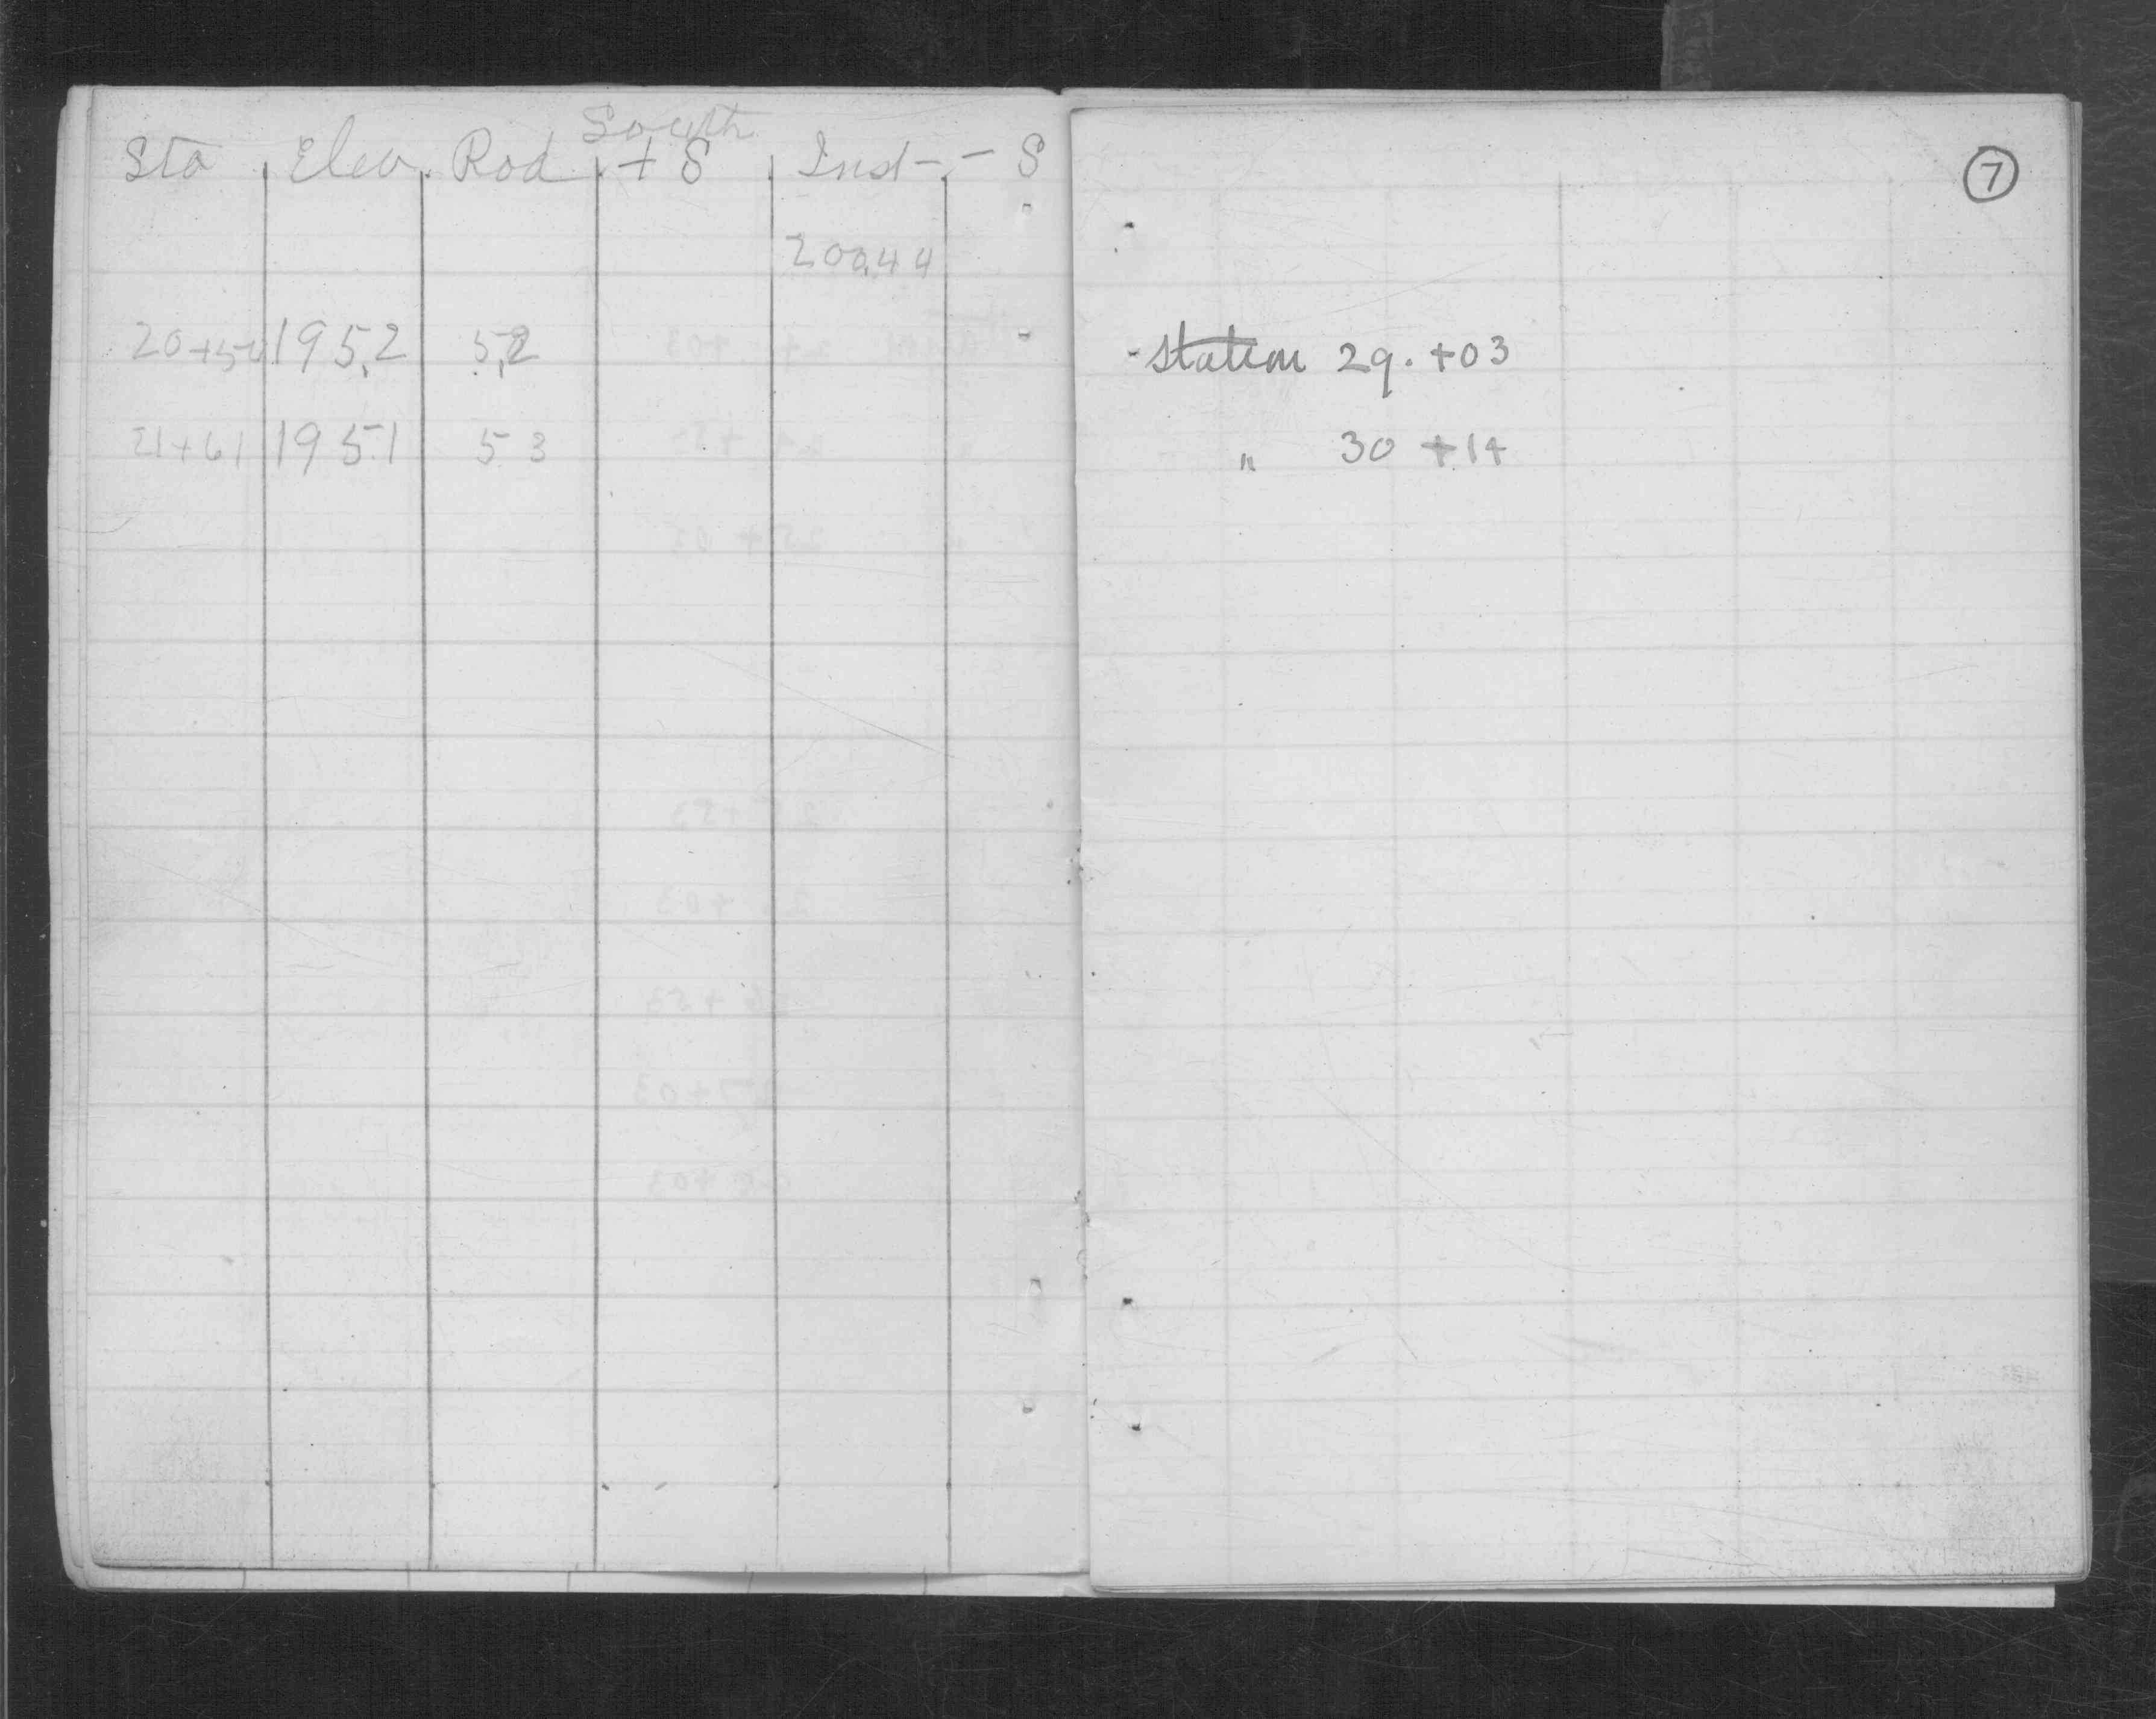 South
Sta Elev. Rod + S Inst - - S
200.44
20+50 195.2 5.2
21+61 195.1 5 3
7
Station 29. +03
" 30 +14